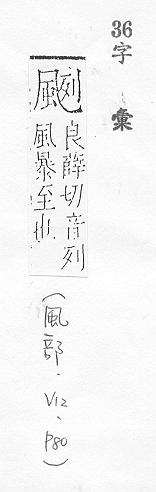 36字彙
颲
良薛切音列
風暴至也
(風部．V12、P80)